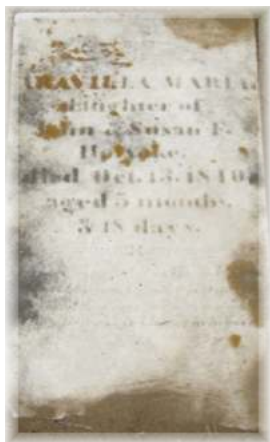 ARAVILLA MARIA,
daughter of
John & Susan F.
Holyoke,
died Oct. 13, 1840,
aged 5 months,
& 18 days.